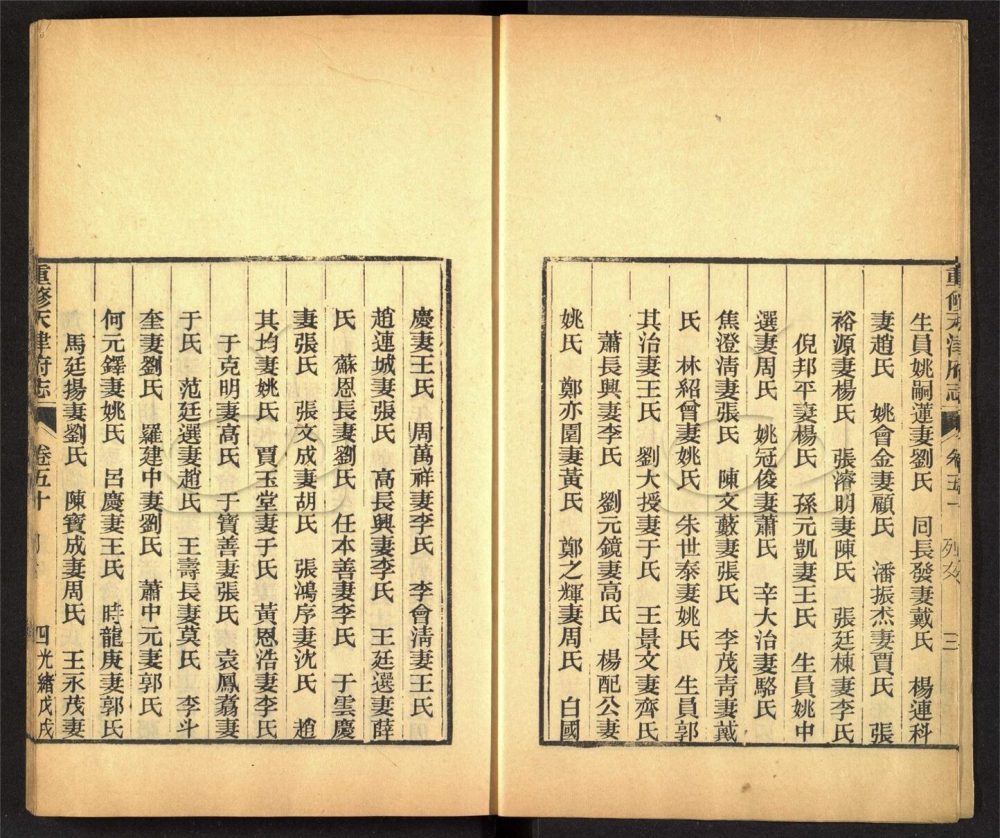 重修天津府志 卷五十 列女 三
生員姚嗣蓮妻劉氏 同長發妻戴氏 楊連科
妻趙氏 姚會金妻顧氏 潘振杰妻賈氏 張
裕源妻楊氏 張濬明妻陳氏 張廷棟妻李氏
倪邦平妻楊氏 孫元凱妻王氏 生員姚中
選妻周氏 姚冠俊妻蕭氏 辛大治妻駱氏
焦澄淸妻張氏 陳文藪妻張氏 李茂靑妻戴
氏 林紹曾妻姚氏 朱世泰妻姚氏 生員郭
其治妻王氏 劉大授妻于氏 王景文妻齊氏
蕭長興妻李氏 劉元鏡妻高氏 楊配公妻
姚氏 鄭亦圍妻黃氏 鄭之輝妻周氏 白國
慶妻王氏 周萬祥妻李氏 李會淸妻王氏
趙連城妻張氏 高長興妻李氏 王廷選妻薛
氏 蘇恩長妻劉氏 任本善妻李氏 于雲慶
妻張氏 張文成妻胡氏 張鴻序妻沈氏 趙
其均妻姚氏 賈玉堂妻于氏 黃恩浩妻李氏
于克明妻高氏 于寶善妻張氏 袁鳳翥妻
于氏 范廷選妻趙氏 王壽長妻莫氏 李斗
奎妻劉氏 羅建中妻劉氏 蕭中元妻郭氏
何元鐸妻姚氏 呂慶妻王氏 時龍庚妻郭氏
馬廷揚妻劉氏 陳寶成妻周氏 王永茂妻
重修天津府志 卷五十 四 光緖戊戌